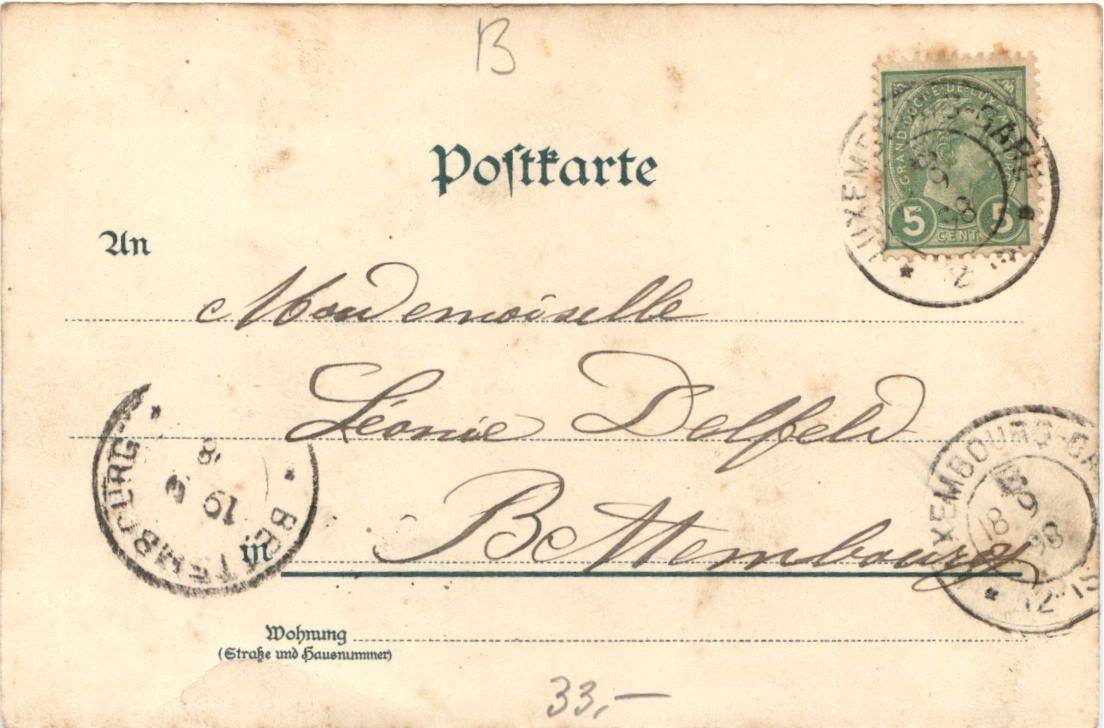 B
Postkarte
GRAND DUCHÉ DE LUXEMBOURG
5 5
CENT
LUXEMBOURG-GARE
18 9 98
12-1S
An
Mademoiselle
Léonie Delfeld
in Bettembourg
BETTEMBOURG
19 9
LUXEMBOURG-GARE
18 9 98
12-1S
Wohnung
(Straße und Hausnummer)
33,–